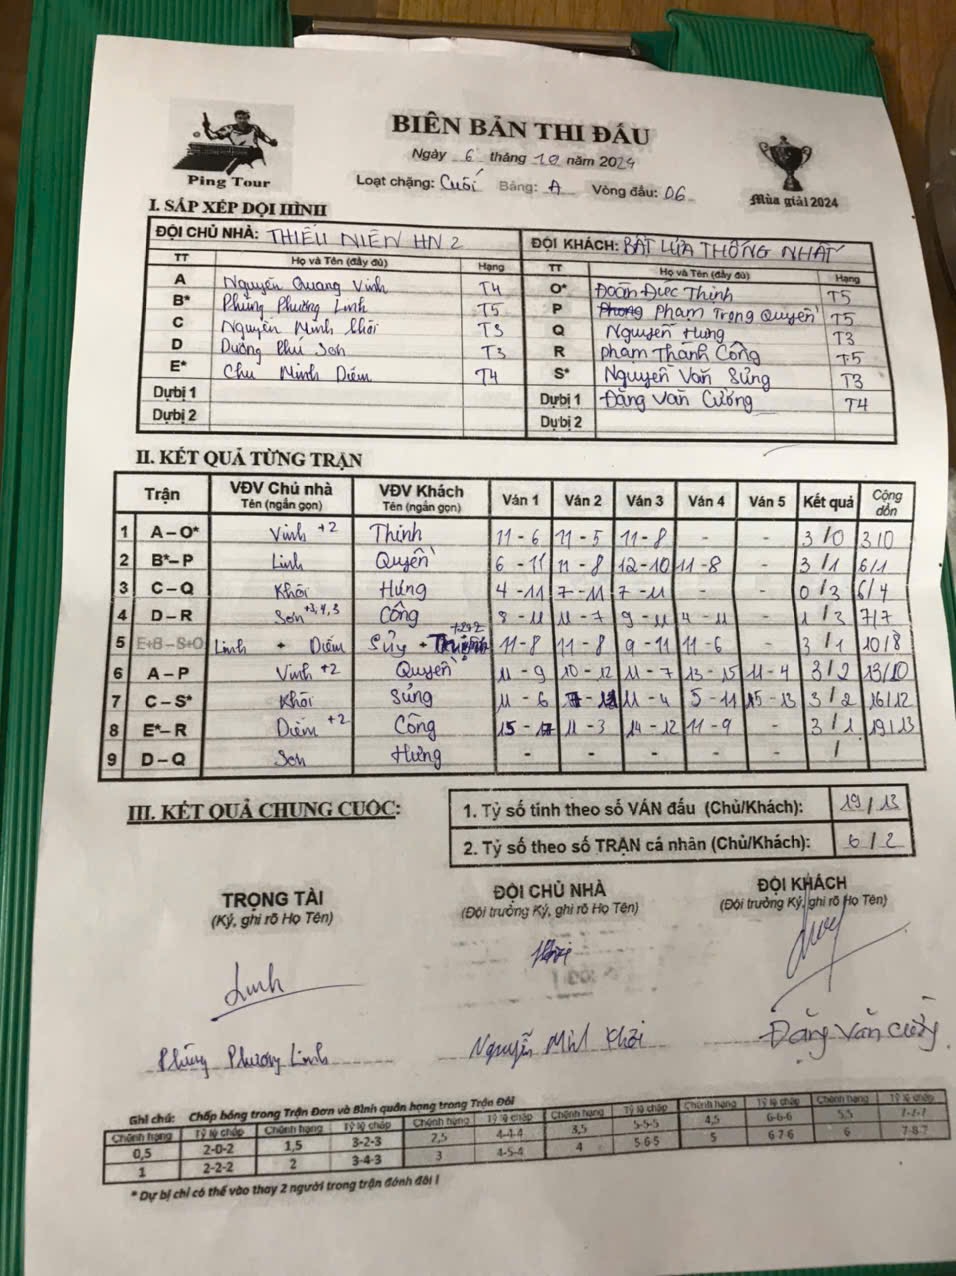 Ping Tour
BIÊN BẢN THI ĐẤU
Ngày 6 tháng 10 năm 2024
Loạt chặng: Cuối Bảng: A Vòng đấu: 06
Mùa giải 2024
I. SẮP XẾP ĐỘI HÌNH
ĐỘI CHỦ NHÀ: THIẾU NIÊN HN 2 ĐỘI KHÁCH: BẬT LỬA THỐNG NHẤT
TT Họ và Tên (đầy đủ) Hạng TT Họ và Tên (đầy đủ) Hạng
A Nguyễn Quang Vinh T4 O* Đoàn Đức Thịnh T5
B* Phùng Phương Linh T5 P Phạm Trọng Quyền T5
C Nguyễn Minh Khôi T3 Q Nguyễn Hưng T3
D Dương Phú Sơn T3 R Phạm Thành Công T5
E* Chu Minh Diễm T4 S* Nguyễn Văn Sủng T3
Dự bị 1 Dự bị 1 Đặng Văn Cường T4
Dự bị 2 Dự bị 2
II. KẾT QUẢ TỪNG TRẬN
Trận VĐV Chủ nhà Tên (ngắn gọn) VĐV Khách Tên (ngắn gọn) Ván 1 Ván 2 Ván 3 Ván 4 Ván 5 Kết quả Cộng dồn
1 A – O* Vinh +2 Thịnh 11 - 6 11 - 5 11 - 8 - - 3 / 0 3/0
2 B* – P Linh Quyền 6 - 11 11 - 8 12 - 10 11 - 8 - 3 / 1 6/1
3 C – Q Khôi Hưng 4 - 11 7 - 11 7 - 11 - - 0 / 3 6/4
4 D – R Sơn +3,4,3 Công 8 - 11 11 - 7 9 - 11 4 - 11 - 1 / 3 7/7
5 E+B – S+O Linh + Diễm Sủng + 11 - 8 11 - 8 9 - 11 11 - 6 - 3 / 1 10/8
6 A – P Vinh +2 Quyền 11 - 9 10 - 12 11 - 7 13 - 15 11 - 4 3 / 2 13/10
7 C – S* Khôi Sủng 11 - 6 11 - 4 5 - 11 15 - 13 3 / 2 16/12
8 E* – R Diễm +2 Công 15 - 17 11 - 3 14 - 12 11 - 9 - 3 / 1 19/13
9 D – Q Sơn Hưng - - - - - /
III. KẾT QUẢ CHUNG CUỘC:
1. Tỷ số tính theo số VÁN đấu (Chủ/Khách): 19 / 13
2. Tỷ số theo số TRẬN cá nhân (Chủ/Khách): 6 / 2
TRỌNG TÀI ĐỘI CHỦ NHÀ ĐỘI KHÁCH
(Ký, ghi rõ Họ Tên) (Đội trưởng Ký, ghi rõ Họ Tên) (Đội trưởng Ký, ghi rõ Họ Tên)
Linh
Phùng Phương Linh Nguyễn Minh Khôi Đặng Văn Cường
Ghi chú: Chấp bóng trong Trận Đơn và Bình quân hạng trong Trận Đôi
Chênh hạng Tỷ lệ chấp Chênh hạng Tỷ lệ chấp Chênh hạng Tỷ lệ chấp Chênh hạng Tỷ lệ chấp Chênh hạng Tỷ lệ chấp Chênh hạng Tỷ lệ chấp
0,5 2-0-2 1,5 3-2-3 2,5 4-4-4 3,5 5-5-5 4,5 6-6-6 5,5 7-7-7
1 2-2-2 2 3-4-3 3 4-5-4 4 5-6-5 5 6-7-6 6 7-8-7
* Dự bị chỉ có thể vào thay 2 người trong trận đánh đôi !